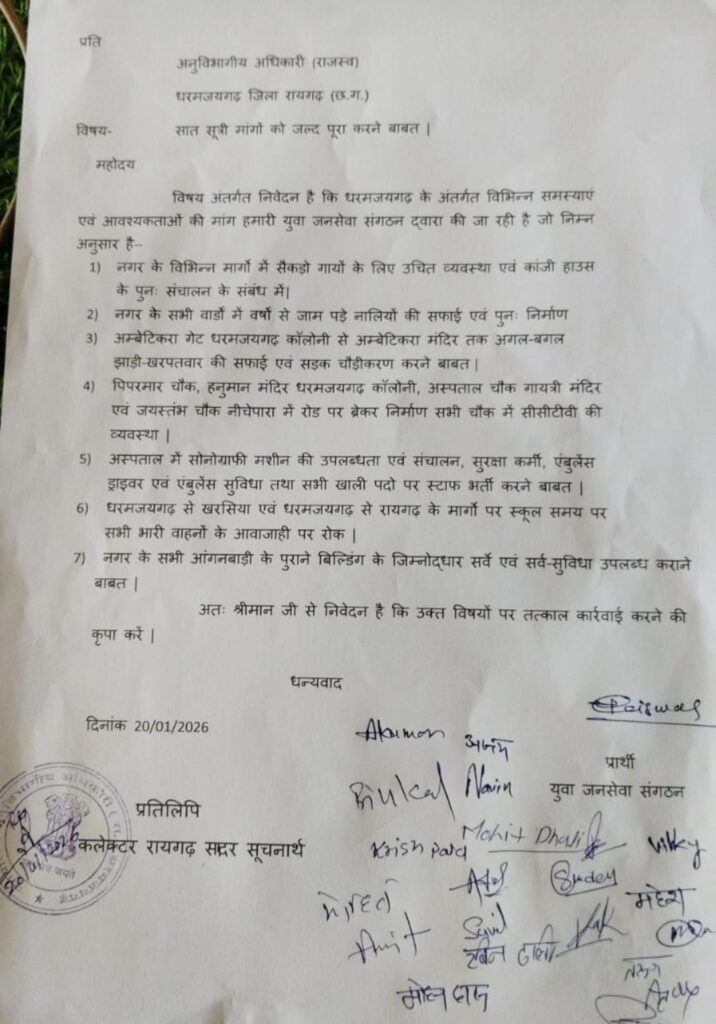 प्रति
अनुविभागीय अधिकारी (राजस्व)
धरमजयगढ़ जिला रायगढ़ (छ.ग.)
विषय- सात सूत्री मांगों को जल्द पूरा करने बाबत |
महोदय
विषय अंतर्गत निवेदन है कि धरमजयगढ़ के अंतर्गत विभिन्न समस्याएं
एवं आवश्यकताओं की मांग हमारी युवा जनसेवा संगठन द्वारा की जा रही है जो निम्न
अनुसार है--
1) नगर के विभिन्न मार्गो में सैकड़ो गायों के लिए उचित व्यवस्था एवं कांजी हाउस
के पुनः संचालन के संबंध में|
2) नगर के सभी वार्डो में वर्षो से जाम पड़े नालियों की सफाई एवं पुनः निर्माण
3) अम्बेटिकरा गेट धरमजयगढ़ कॉलोनी से अम्बेटिकरा मंदिर तक अगल-बगल
झाड़ी-खरपतवार की सफाई एवं सड़क चौड़ीकरण करने बाबत |
4) पिपरमार चौक, हनुमान मंदिर धरमजयगढ़ कॉलोनी, अस्पताल चौक गायत्री मंदिर
एवं जयस्तंभ चौक नीचेपारा में रोड पर ब्रेकर निर्माण सभी चौक में सीसीटीवी की
व्यवस्था |
5) अस्पताल में सोनोग्राफी मशीन की उपलब्धता एवं संचालन, सुरक्षा कर्मी, एंबुलेंस
ड्राइवर एवं एंबुलेंस सुविधा तथा सभी खाली पदो पर स्टाफ भर्ती करने बाबत |
6) धरमजयगढ़ से खरसिया एवं धरमजयगढ़ से रायगढ़ के मार्गो पर स्कूल समय पर
सभी भारी वाहनों के आवाजाही पर रोक |
7) नगर के सभी आंगनबाड़ी के पुराने बिल्डिंग के जिम्नोद्धार सर्वे एवं सर्व-सुविधा उपलब्ध कराने
बाबत |
अतः श्रीमान जी से निवेदन है कि उक्त विषयों पर तत्काल कार्रवाई करने की
कृपा करें |
धन्यवाद
दिनांक 20/01/2026
प्रार्थी
युवा जनसेवा संगठन
प्रतिलिपि
कलेक्टर रायगढ़ सादर सूचनार्थ
Mohit Dhali
Vikky
महेश
Amit